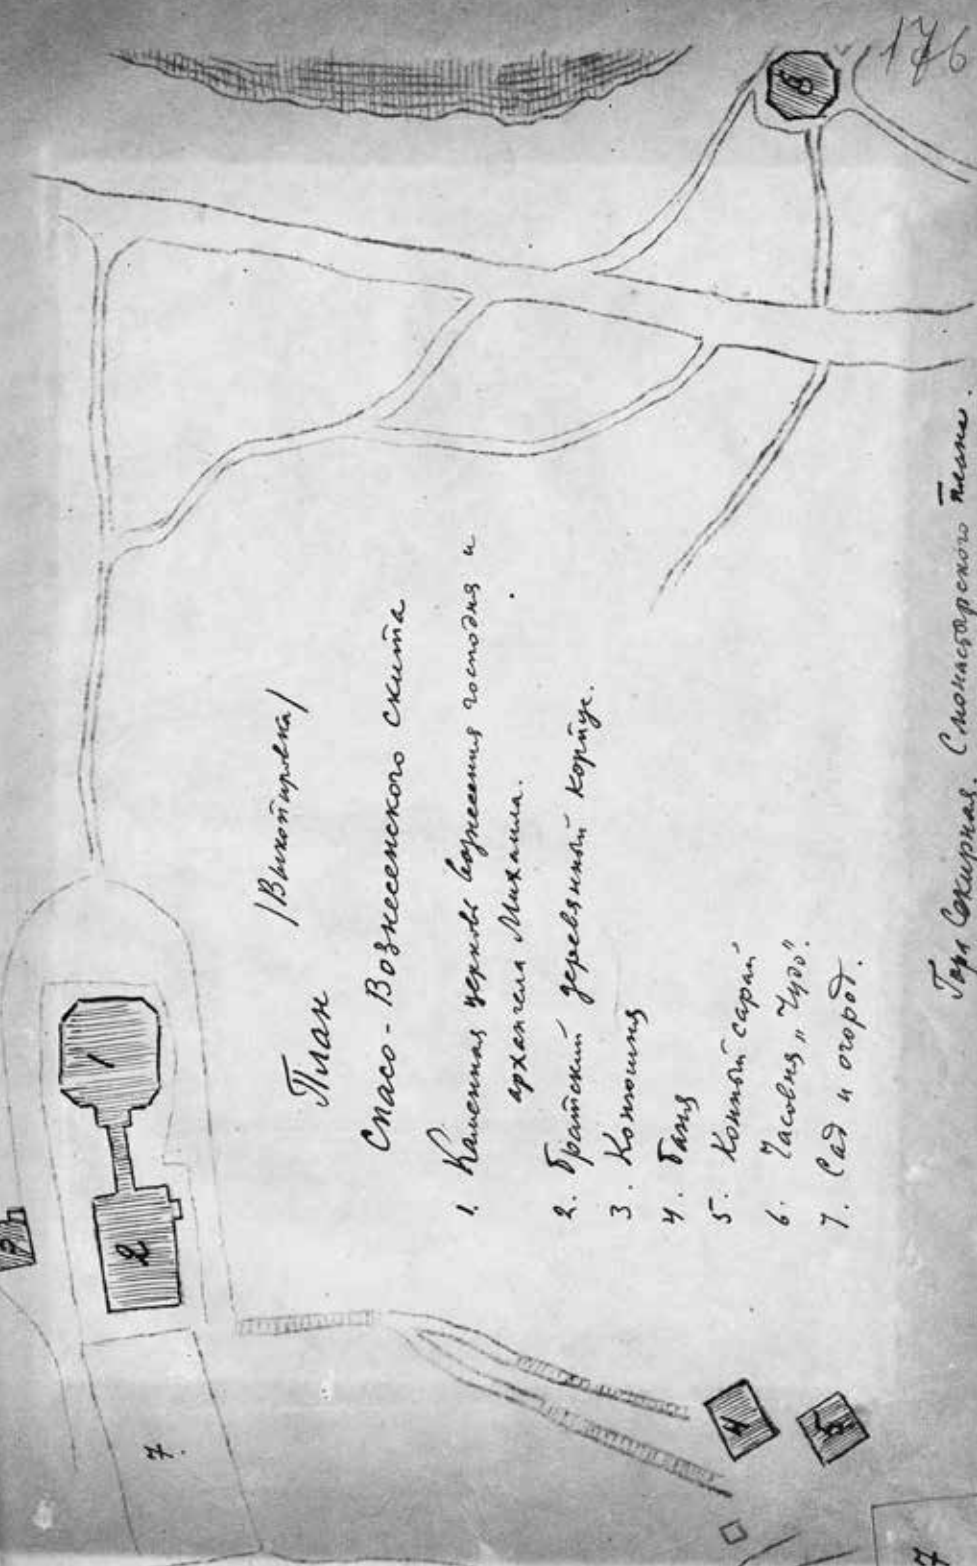 176
/Выкопировка/
План
Спасо-Вознесенского скита
1. Каменная церковь вознесения господня и
архангела Михаила.
2. Братский деревянный корпус.
3. Конюшня
4. Баня
5. Конный сарай
6. Часовня „Чудо“.
7. Сад и огород.
Гора Секирная. С монастырского плана.
1
2
3
4
5
6
7.
7